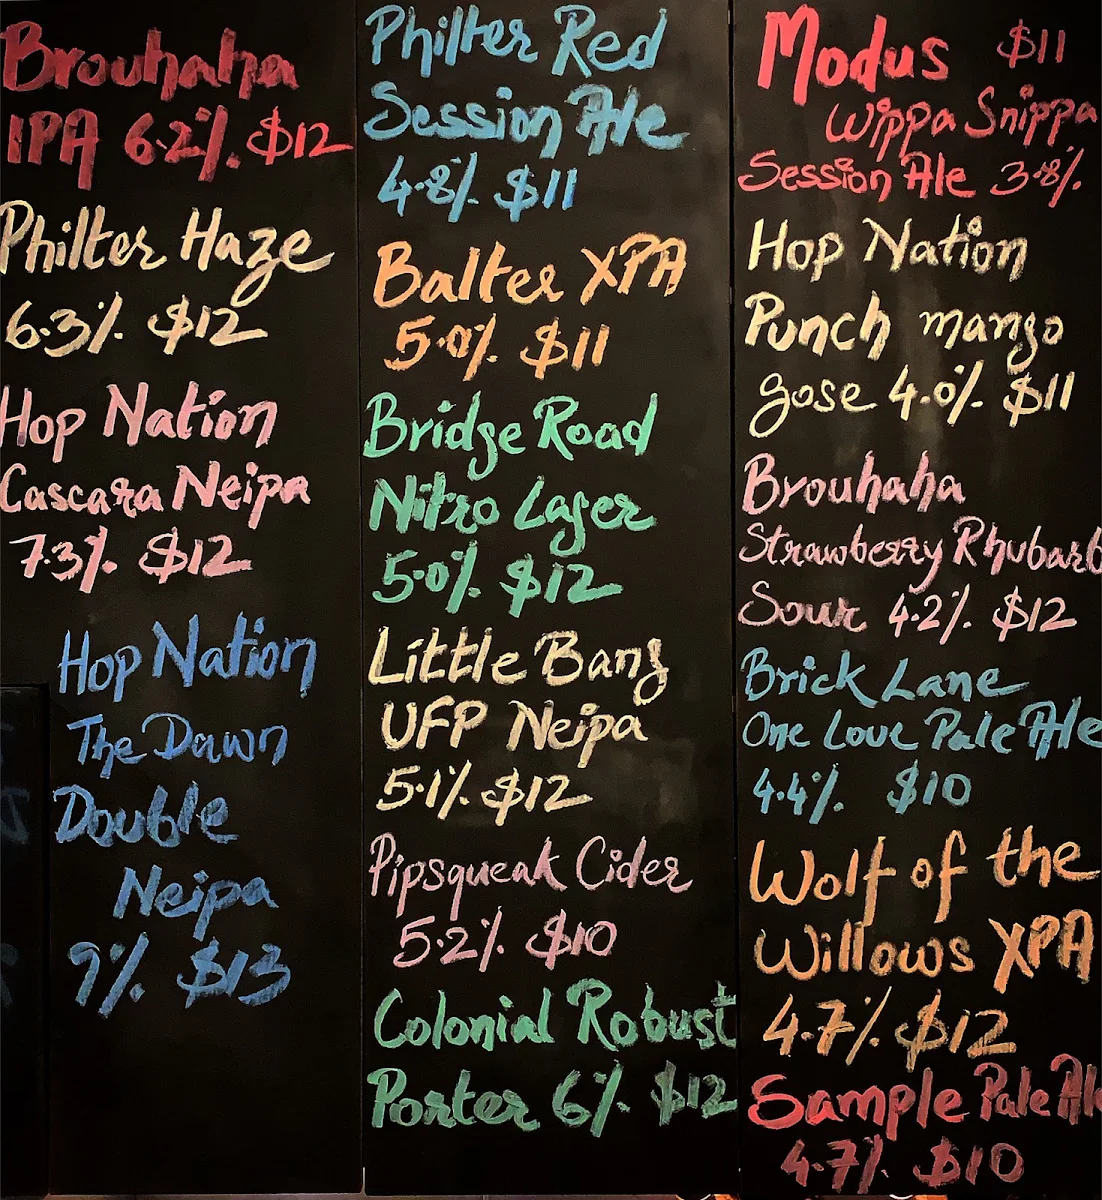 Brouhaha
IPA 6.2% $12
Philter Haze
6.3% $12
Hop Nation
Cascara Neipa
7.3% $12
Hop Nation
The Dawn
Double
Neipa
9% $13
Philter Red
Session Ale
4.8% $11
Balter XPA
5.0% $11
Bridge Road
Nitro Lager
5.0% $12
Little Bang
UFP Neipa
5.1% $12
Pipsqueak Cider
5.2% $10
Colonial Robust
Porter 6% $12
Modus $11
Wippa Snippa
Session Ale 3.8%
Hop Nation
Punch mango
gose 4.0% $11
Brouhaha
Strawberry Rhubarb
Sour 4.2% $12
Brick Lane
One Love Pale Ale
4.4% $10
Wolf of the
Willows XPA
4.7% $12
Sample Pale Ale
4.7% $10